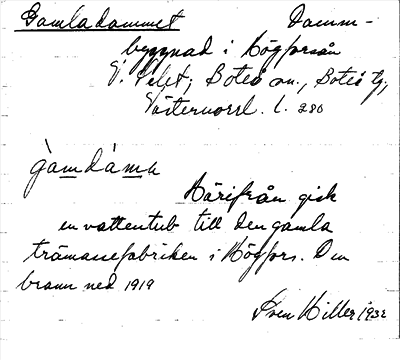 Gamla dammet Damm-
byggnad i Högforsån
Boteå sn., Boteå tg,
Västernorrl. l. 280
gàmdàmn
Härifrån gick
en vattentub till den gamla
trämassefabriken i Högfors. Den
brann ned 1919
Sven Hiller 1932